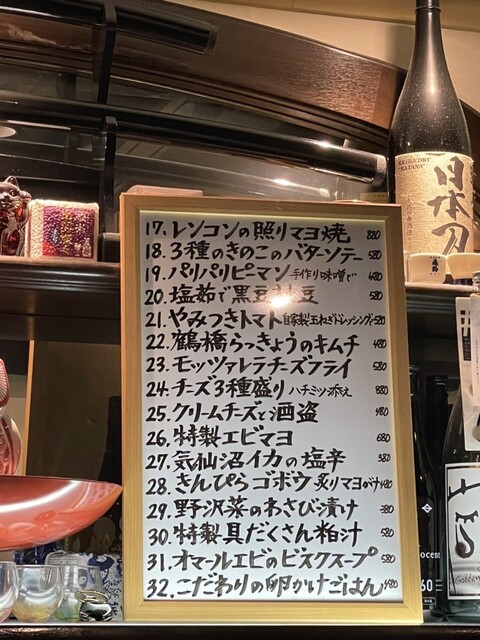 EXTRA DRY
"KATANA"
日本刀
17. レンコンの照りマヨ焼 880
18. 3種のきのこのバターソテー 580
19. パリパリピーマン 手作り味噌で 480
20. 塩茹で黒豆枝豆 580
21. やみつきトマト 自家製玉ねぎドレッシング 520
22. 鶴橋らっきょうのキムチ 480
23. モッツァレラチーズフライ 580
24. チーズ3種盛り ハチミツ添え 880
25. クリームチーズと酒盗 480
26. 特製エビマヨ 680
27. 気仙沼イカの塩辛 380
28. きんぴらゴボウ 炙りマヨがけ 480
29. 野沢菜のわさび漬け 380
30. 特製具だくさん粕汁 580
31. オマールエビのビスクスープ 580
32. こだわりの卵かけごはん 480
60